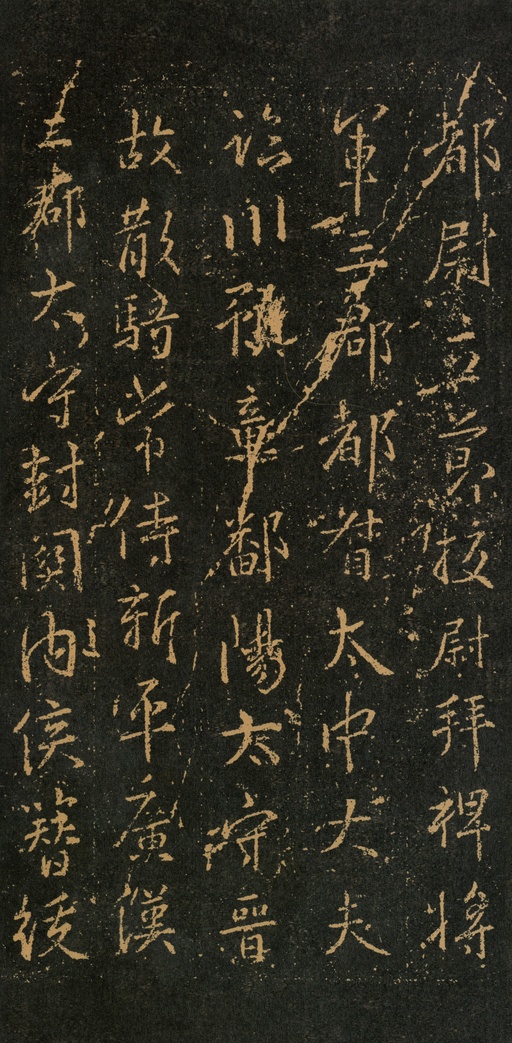 都尉立節校尉拜裨將
軍三郡都督太中大夫
臨川豫章鄱陽太守晉
故散騎常侍新平廣漢
二郡太守封關內侯簪綬